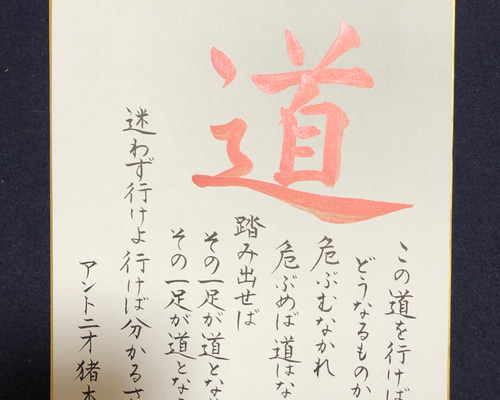 道
この道を行けば
どうなるものか
危ぶむなかれ
危ぶめば道はな
踏み出せば
その一足が道とな
その一足が道とな
迷わず行けよ行けば分かるさ
アントニオ猪木